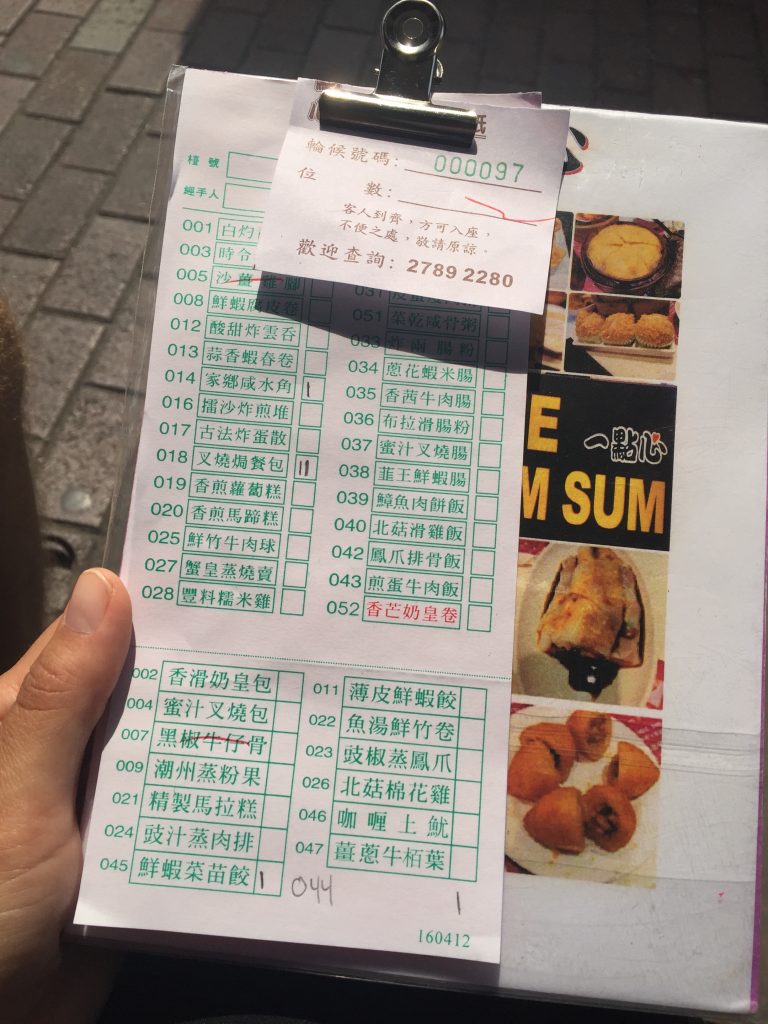 輪候號碼: 000097
位 數:
客人到齊，方可入座，
不便之處，敬請原諒。
歡迎查詢: 2789 2280
檯 號
經手人
001 白灼
003 時令
005 沙薑雞腳
008 鮮蝦腐皮卷
012 酸甜炸雲吞
013 蒜香蝦春卷
014 家鄉咸水角 1
016 擂沙炸煎堆
017 古法炸蛋散
018 叉燒焗餐包 11
019 香煎蘿蔔糕
020 香煎馬蹄糕
025 鮮竹牛肉球
027 蟹皇蒸燒賣
028 豐料糯米雞
031
051 菜乾咸骨粥
033 炸兩腸粉
034 蔥花蝦米腸
035 香茜牛肉腸
036 布拉滑腸粉
037 蜜汁叉燒腸
038 韮王鮮蝦腸
039 鱆魚肉餅飯
040 北菇滑雞飯
042 鳳爪排骨飯
043 煎蛋牛肉飯
052 香芒奶皇卷
002 香滑奶皇包
004 蜜汁叉燒包
007 黑椒牛仔骨
009 潮州蒸粉果
021 精製馬拉糕
024 豉汁蒸肉排
045 鮮蝦菜苗餃 1
011 薄皮鮮蝦餃
022 魚湯鮮竹卷
023 豉椒蒸鳳爪
026 北菇棉花雞
046 咖喱土魷
047 薑蔥牛栢葉
044 1
160412
E 一點心
M SUM